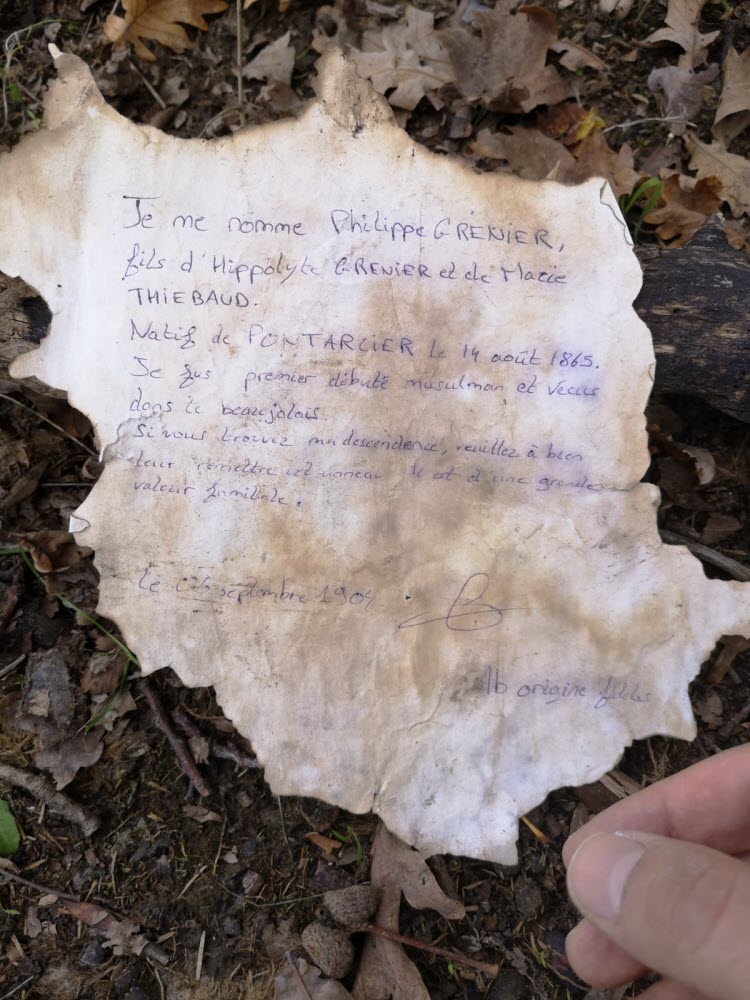 Je me nomme Philippe GRENIER,
fils d'Hippolyte GRENIER et de Marie
THIEBAUD.
Natif de PONTARLIER le 14 août 1865.
Je fus premier débuté musulman et vécus
dans le beaujolais.
Si vous trouvez ma descendence, veuillez à bien
leur remettre cet anneau il est d'une grande
valeur familiale.
le septembre 1904
Ab origine fidelis